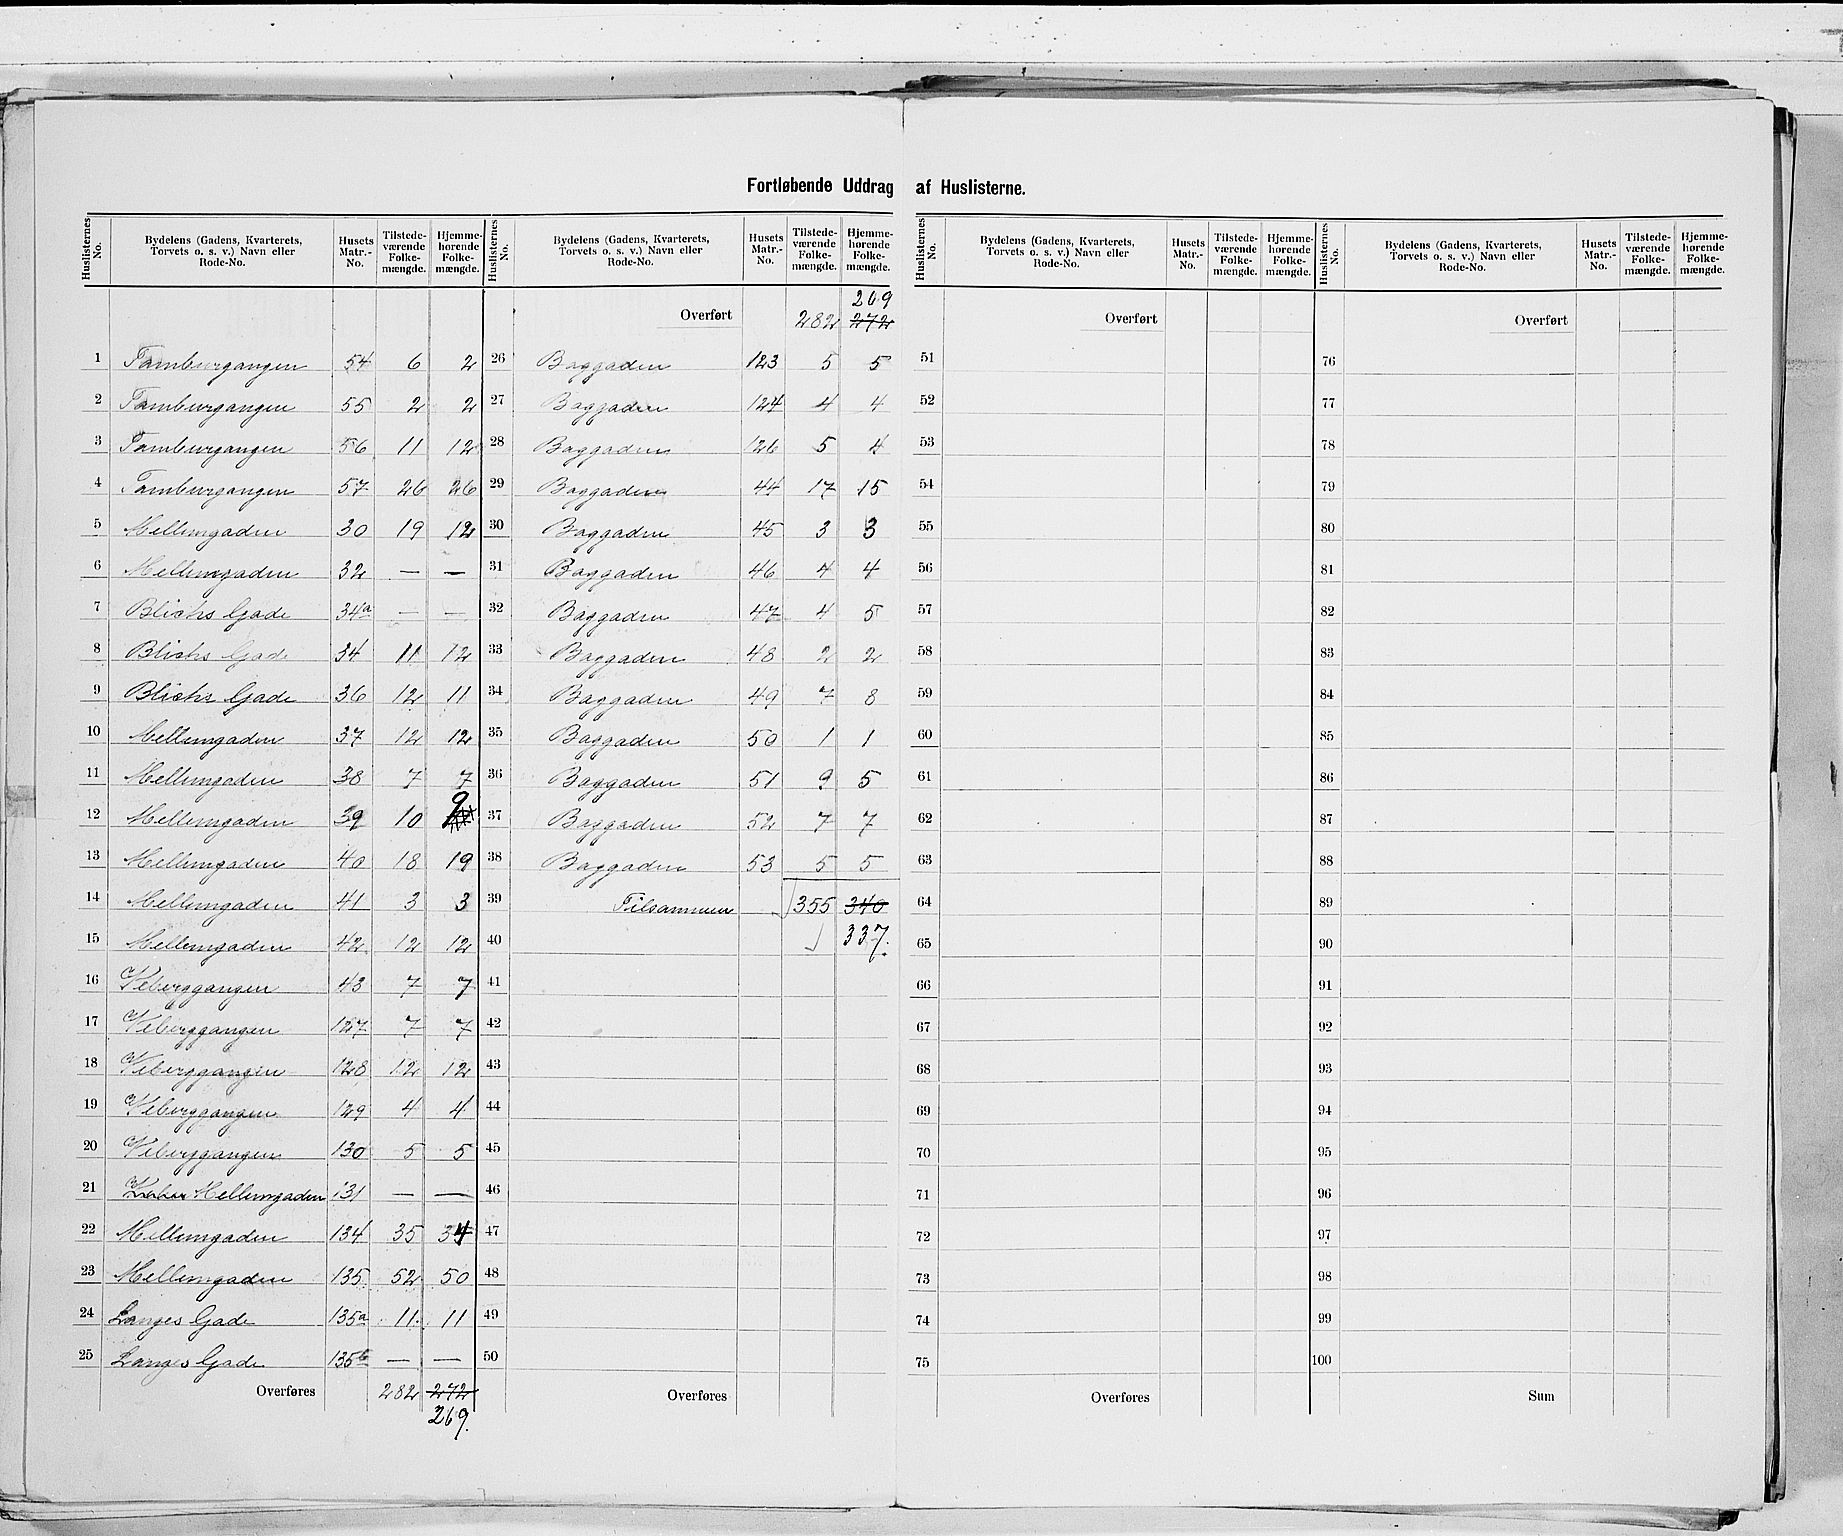 Fortløbende Uddrag af Huslisterne.
Huslisternes No. | Bydelens (Gadens, Kvarterets, Torvets o. s. v.) Navn eller Rode-No. | Husets Matr.-No. | Tilstede-værende Folke-mængde. | Hjemme-hørende Folke-mængde.
1 Tamburgangen 54 6 2
2 Tamburgangen 55 2 2
3 Tamburgangen 56 11 12
4 Tamburgangen 57 26 26
5 Mellemgaden 30 19 12
6 Mellemgaden 32 — —
7 Blichs Gade 34a — —
8 Blichs Gade 34 11 12
9 Blichs Gade 36 12 11
10 Mellemgaden 37 12 12
11 Mellemgaden 38 7 7
12 Mellemgaden 39 10 9
13 Mellemgaden 40 18 19
14 Mellemgaden 41 3 3
15 Mellemgaden 42 12 12
16 Vebergangen 43 7 7
17 Vebergangen 127 7 7
18 Vebergangen 128 12 12
19 Vebergangen 129 4 4
20 Vebergangen 130 5 5
21 Mellemgaden 131 — —
22 Mellemgaden 134 35 34
23 Mellemgaden 135 52 50
24 Langes Gade 135a 11 11
25 Langes Gade 135b — —
Overføres 282 272
269.
Huslisternes No. | Bydelens (Gadens, Kvarterets, Torvets o. s. v.) Navn eller Rode-No. | Husets Matr.-No. | Tilstede-værende Folke-mængde. | Hjemme-hørende Folke-mængde.
269
Overført 282 272
26 Baggaden 123 5 5
27 Baggaden 124 4 4
28 Baggaden 126 5 4
29 Baggaden 44 17 15
30 Baggaden 45 3 3
31 Baggaden 46 4 4
32 Baggaden 47 4 5
33 Baggaden 48 2 2
34 Baggaden 49 7 8
35 Baggaden 50 1 1
36 Baggaden 51 9 5
37 Baggaden 52 7 7
38 Baggaden 53 5 5
39 Tilsammen 355 340
40 337.
41
42
43
44
45
46
47
48
49
50
Overføres
Huslisternes No. | Bydelens (Gadens, Kvarterets, Torvets o. s. v.) Navn eller Rode-No. | Husets Matr.-No. | Tilstede-værende Folke-mængde. | Hjemme-hørende Folke-mængde.
Overført
51
52
53
54
55
56
57
58
59
60
61
62
63
64
65
66
67
68
69
70
71
72
73
74
75
Overføres
Huslisternes No. | Bydelens (Gadens, Kvarterets, Torvets o. s. v.) Navn eller Rode-No. | Husets Matr.-No. | Tilstede-værende Folke-mængde. | Hjemme-hørende Folke-mængde.
Overført
76
77
78
79
80
81
82
83
84
85
86
87
88
89
90
91
92
93
94
95
96
97
98
99
100
Sum